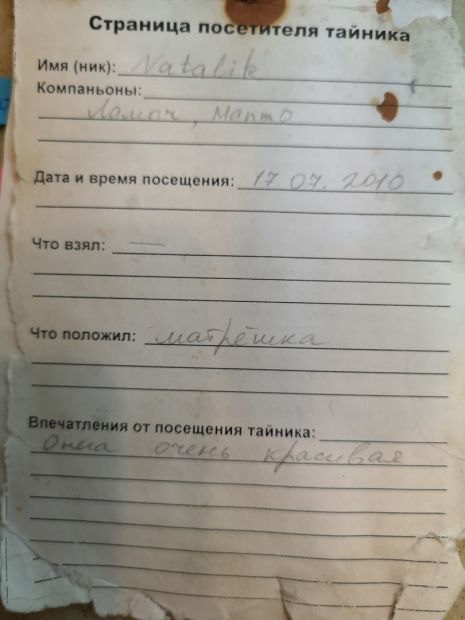 Страница посетителя тайника
Имя (ник): Natalik
Компаньоны:
Ломач, Мапто
Дата и время посещения: 17.07.2010
Что взял: —
Что положил: матрёшка
Впечатления от посещения тайника:
Онега очень красивая